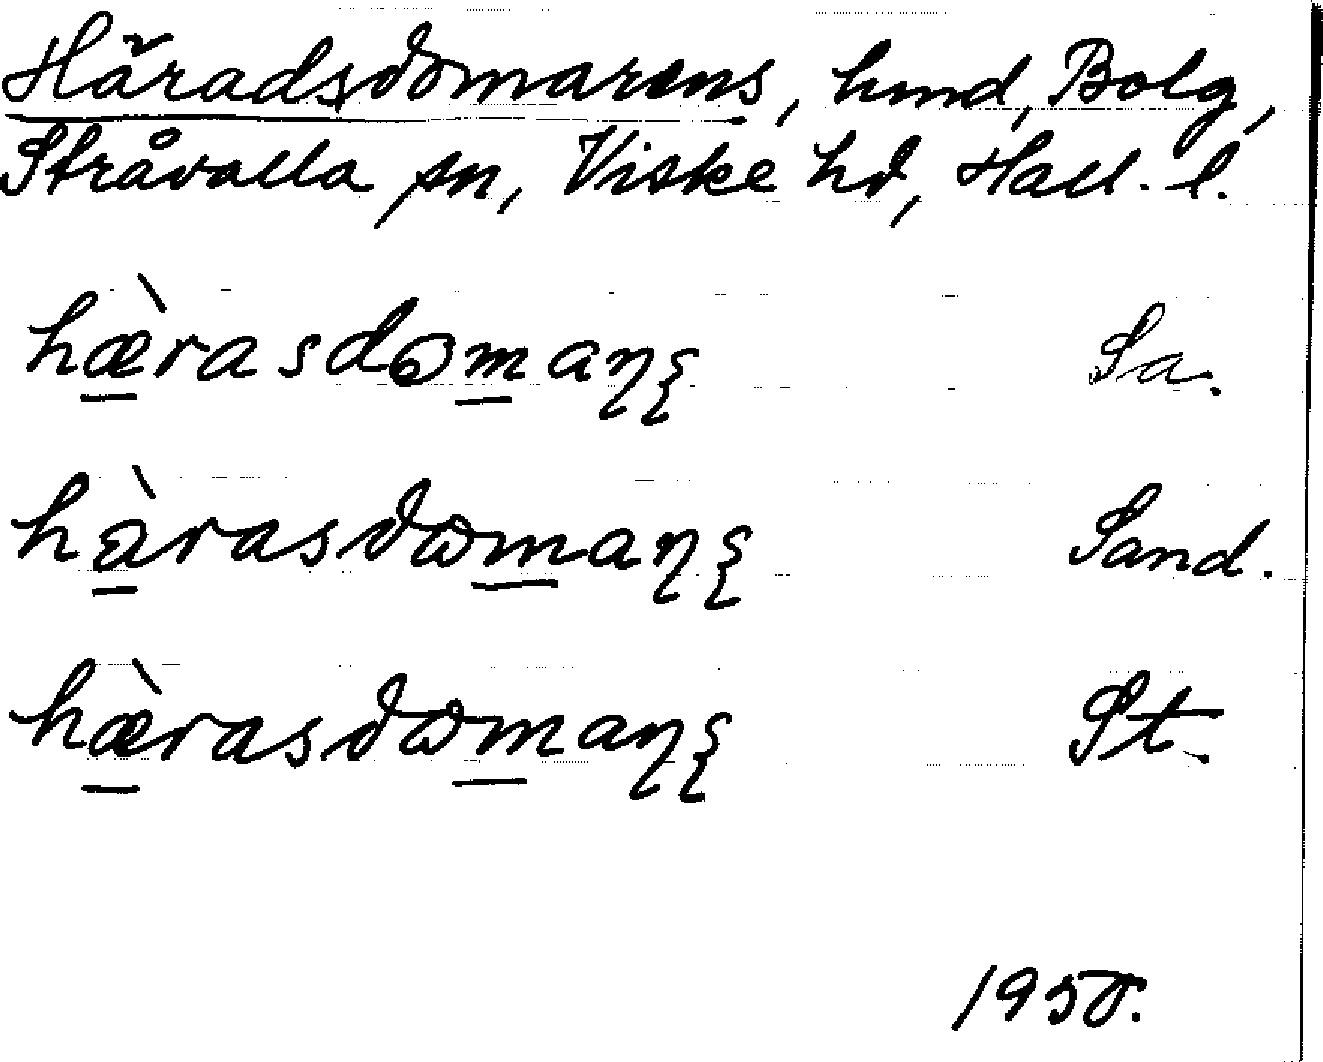 Häradsdomarens, hmd, Bolg,
Stråvalla sn, Viske hd, Hall. l.
hæ̀rasdɷmaɳʂ Sa.
hàrasdɷmaɳʂ Sand.
hæ̀rasdɷmaɳʂ St.
1950.